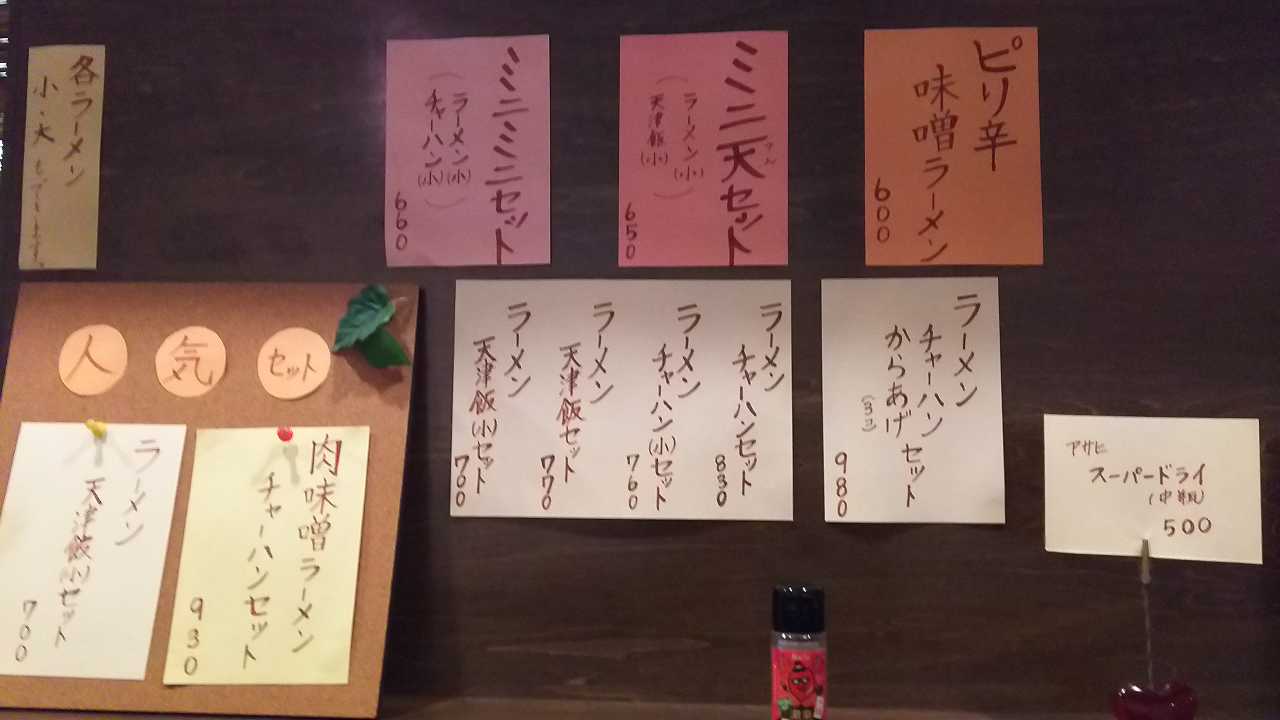 各ラーメン
小・大もできます。
ミニミニセット
ラーメン(小)
チャーハン(小)
660
ミニ天セット
てん
ラーメン(小)
天津飯(小)
650
ピリ辛
味噌ラーメン
600
人気セット
ラーメン
天津飯(小)セット
700
肉味噌ラーメン
チャーハンセット
930
ラーメン
チャーハンセット
830
ラーメン
チャーハン(小)セット
760
ラーメン
天津飯セット
770
ラーメン
天津飯(小)セット
700
ラーメン
チャーハン
からあげセット
(3コ)
980
アサヒ
スーパードライ
(中瓶)
500